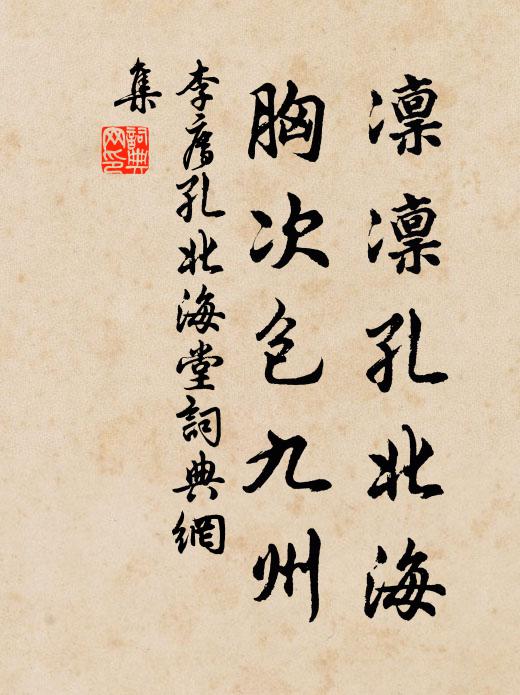 凛凛孔北海
胸次包九州
李廌孔北海堂詞典網
集
詞典網印